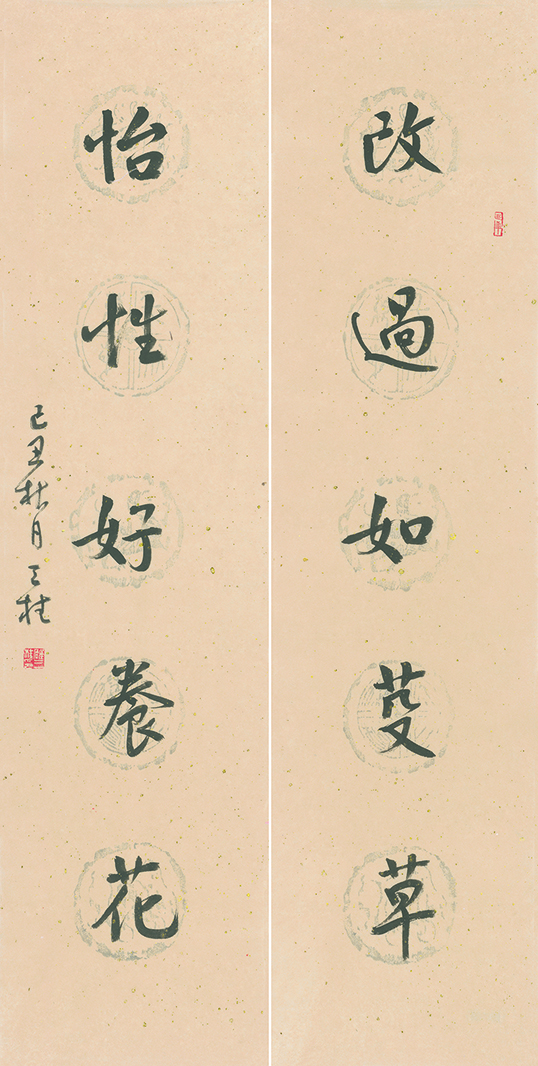 改過如芟草
怡性好養花
己丑秋月